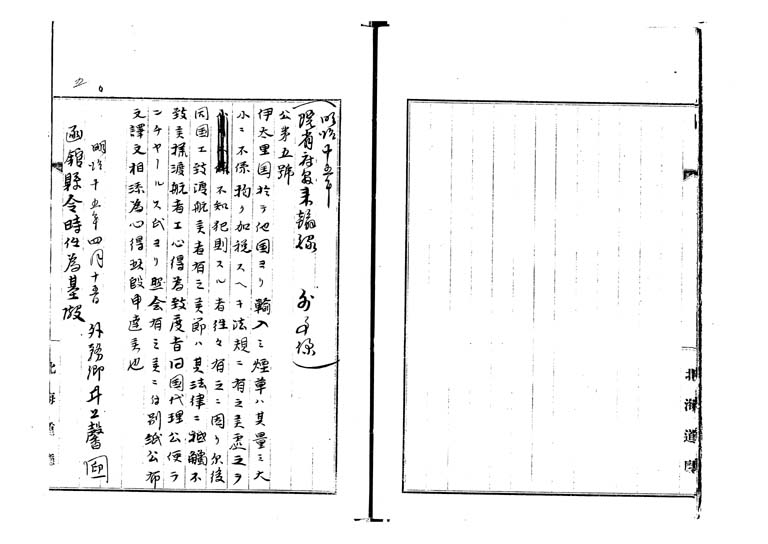 明治十五年
公第五號
伊太里国於テ他国ヨリ輸入之煙草ハ其量之大
小ニ不係物リ加税スヘキ法規ニ有之候處之ヲ
不知犯則スル者往々有之ニ因リ尓後
同国エ致渡航候者有之候節ハ其法律ニ牴觸不
致候様渡航者エ心得為致度旨同国代理公使ラ
ンチヤールス氏ヨリ照会有之候ニ付別紙公布
文譯文相添為心得此段申達候也
明治十五年四月十五日 外務卿井上馨 印
函館縣令時任為基殿
五
北海道廳